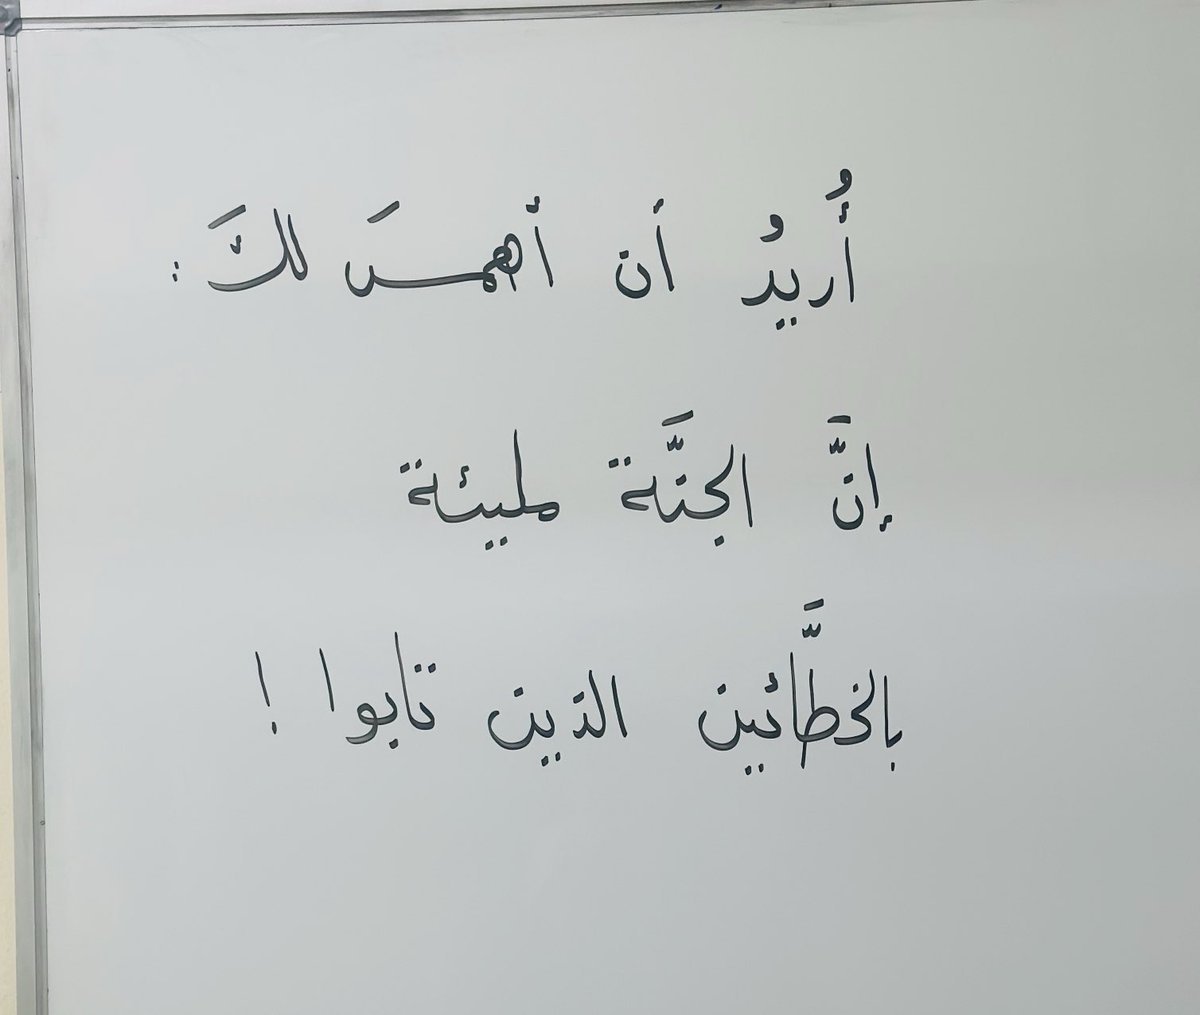 أُريدُ أن أهمسَ لكَ :
إنَّ الجنَّة مليئة
بالخطَّائين الذين تابوا !